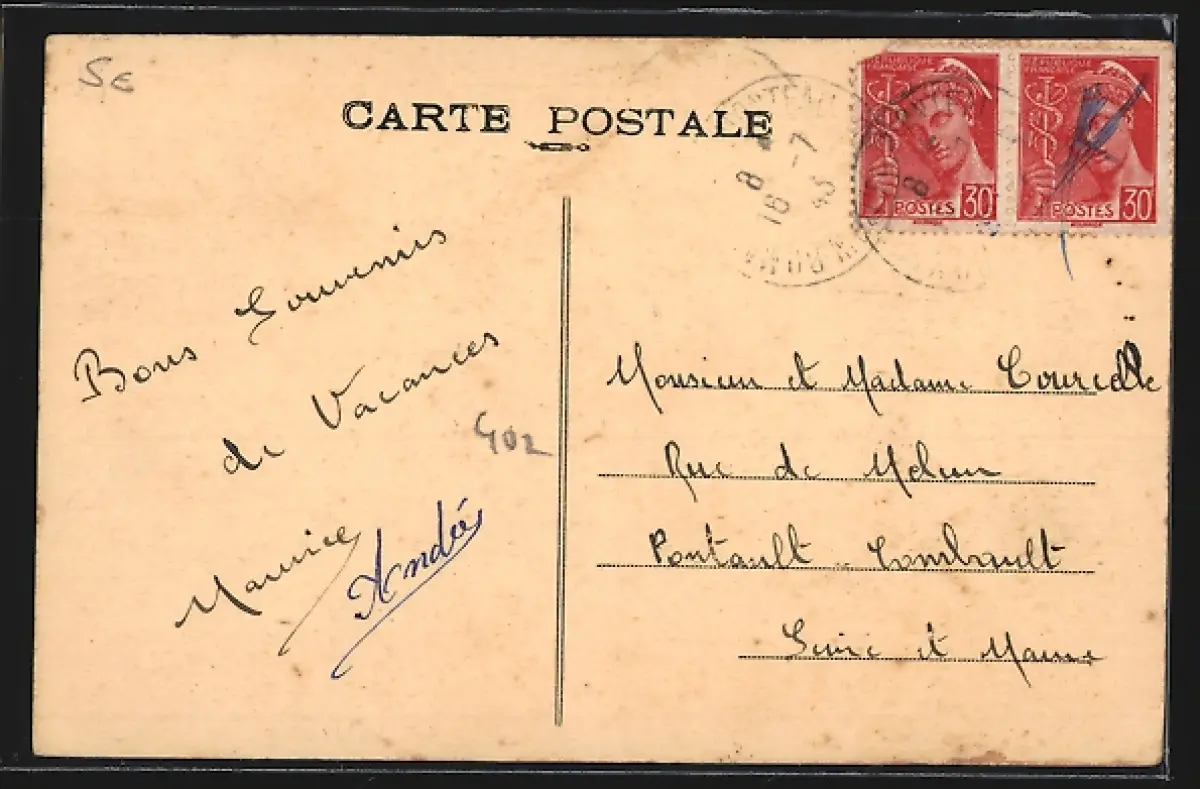 5€
CARTE POSTALE
RÉPUBLIQUE FRANÇAISE
POSTES 30
RÉPUBLIQUE FRANÇAISE
POSTES 30
8
18 -7
Bons Souvenirs
de Vacances
402
Maurice
Andrée
Monsieur et Madame Courcelle
Rue de Melun
Pontault-Combault
Seine et Marne